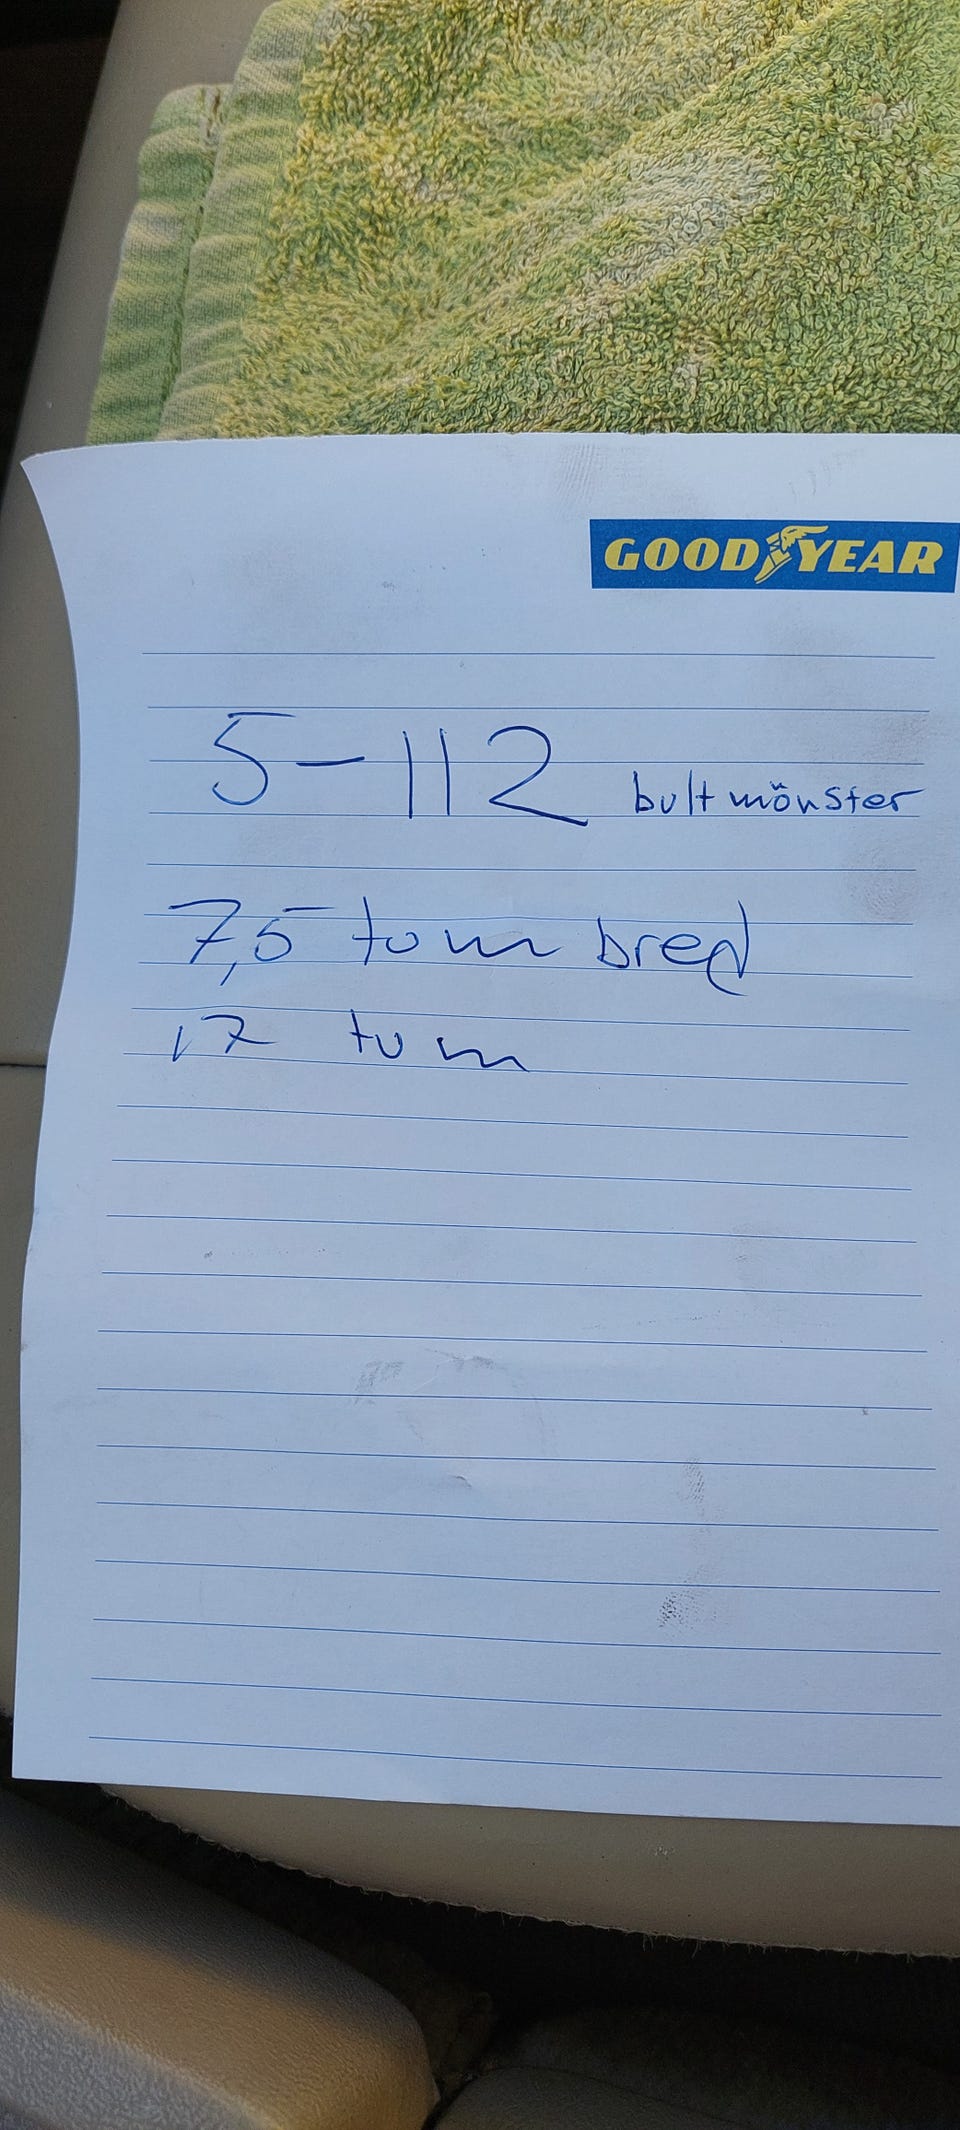 GOODYEAR
5-112 bultmönster
7,5 tum bred
17 tum